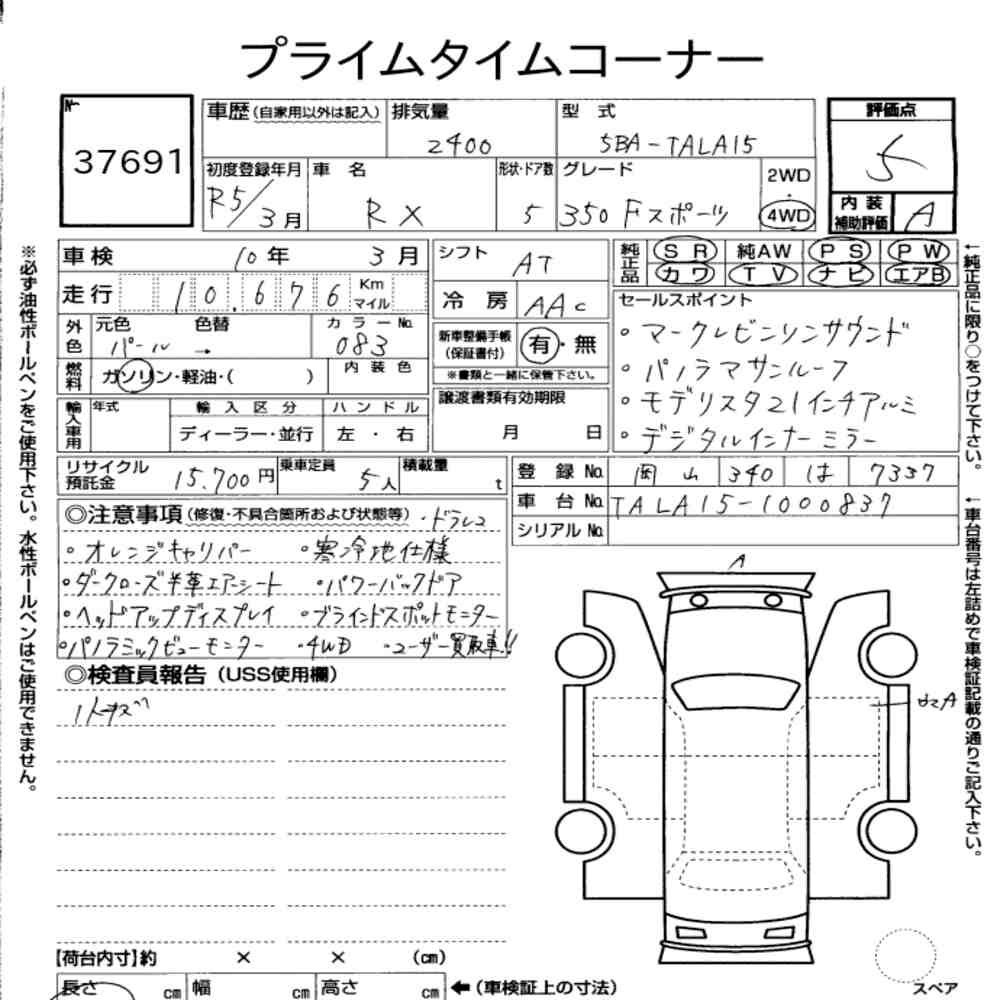 プライムタイムコーナー
No.
37691
車歴(自家用以外は記入)
排気量
2400
型 式
5BA-TALA15
評価点
5
初度登録年月
R5/3月
車 名
RX
形状・ドア数
5
グレード
350 Fスポーツ
2WD
・
4WD
内装
補助評価
A
車検 10年 3月
走行 10,676 Km マイル
シフト
AT
冷房
AAC
純正品
SR 純AW PS PW
カワ TV ナビ エアB
外色
元色 色替
パール →
カラーNo.
083
新車整備手帳
(保証書付)
有・無
※書類と一緒に保管下さい。
セールスポイント
・マークレビンソンサウンド
・パノラマサンルーフ
・モデリスタ21インチアルミ
・デジタルインナーミラー
燃料
ガソリン・軽油・( )
内装色
輸入車用
年式
輸入区分
ディーラー・並行
ハンドル
左・右
譲渡書類有効期限
月 日
リサイクル
預託金
15,700円
乗車定員
5人
積載量
t
登録No. 岡山 340 は 7337
車台No. TALA15-1000837
シリアルNo.
◎注意事項(修復・不具合箇所および状態等)・ドラレコ
・オレンジキャリパー ・寒冷地仕様
・ダークローズ半革エアシート ・パワーバックドア
・ヘッドアップディスプレイ ・ブラインドスポットモニター
・パノラミックビューモニター ・4WD ・ユーザー買取車!!
◎検査員報告(USS使用欄)
A
A
【荷台内寸】約 × × (cm)
長さ cm 幅 cm 高さ cm ←(車検証上の寸法)
スペア
※必ず油性ボールペンをご使用下さい。水性ボールペンはご使用できません。
←純正品に限り○をつけて下さい。
←車台番号は左詰めで車検証記載の通りご記入下さい。